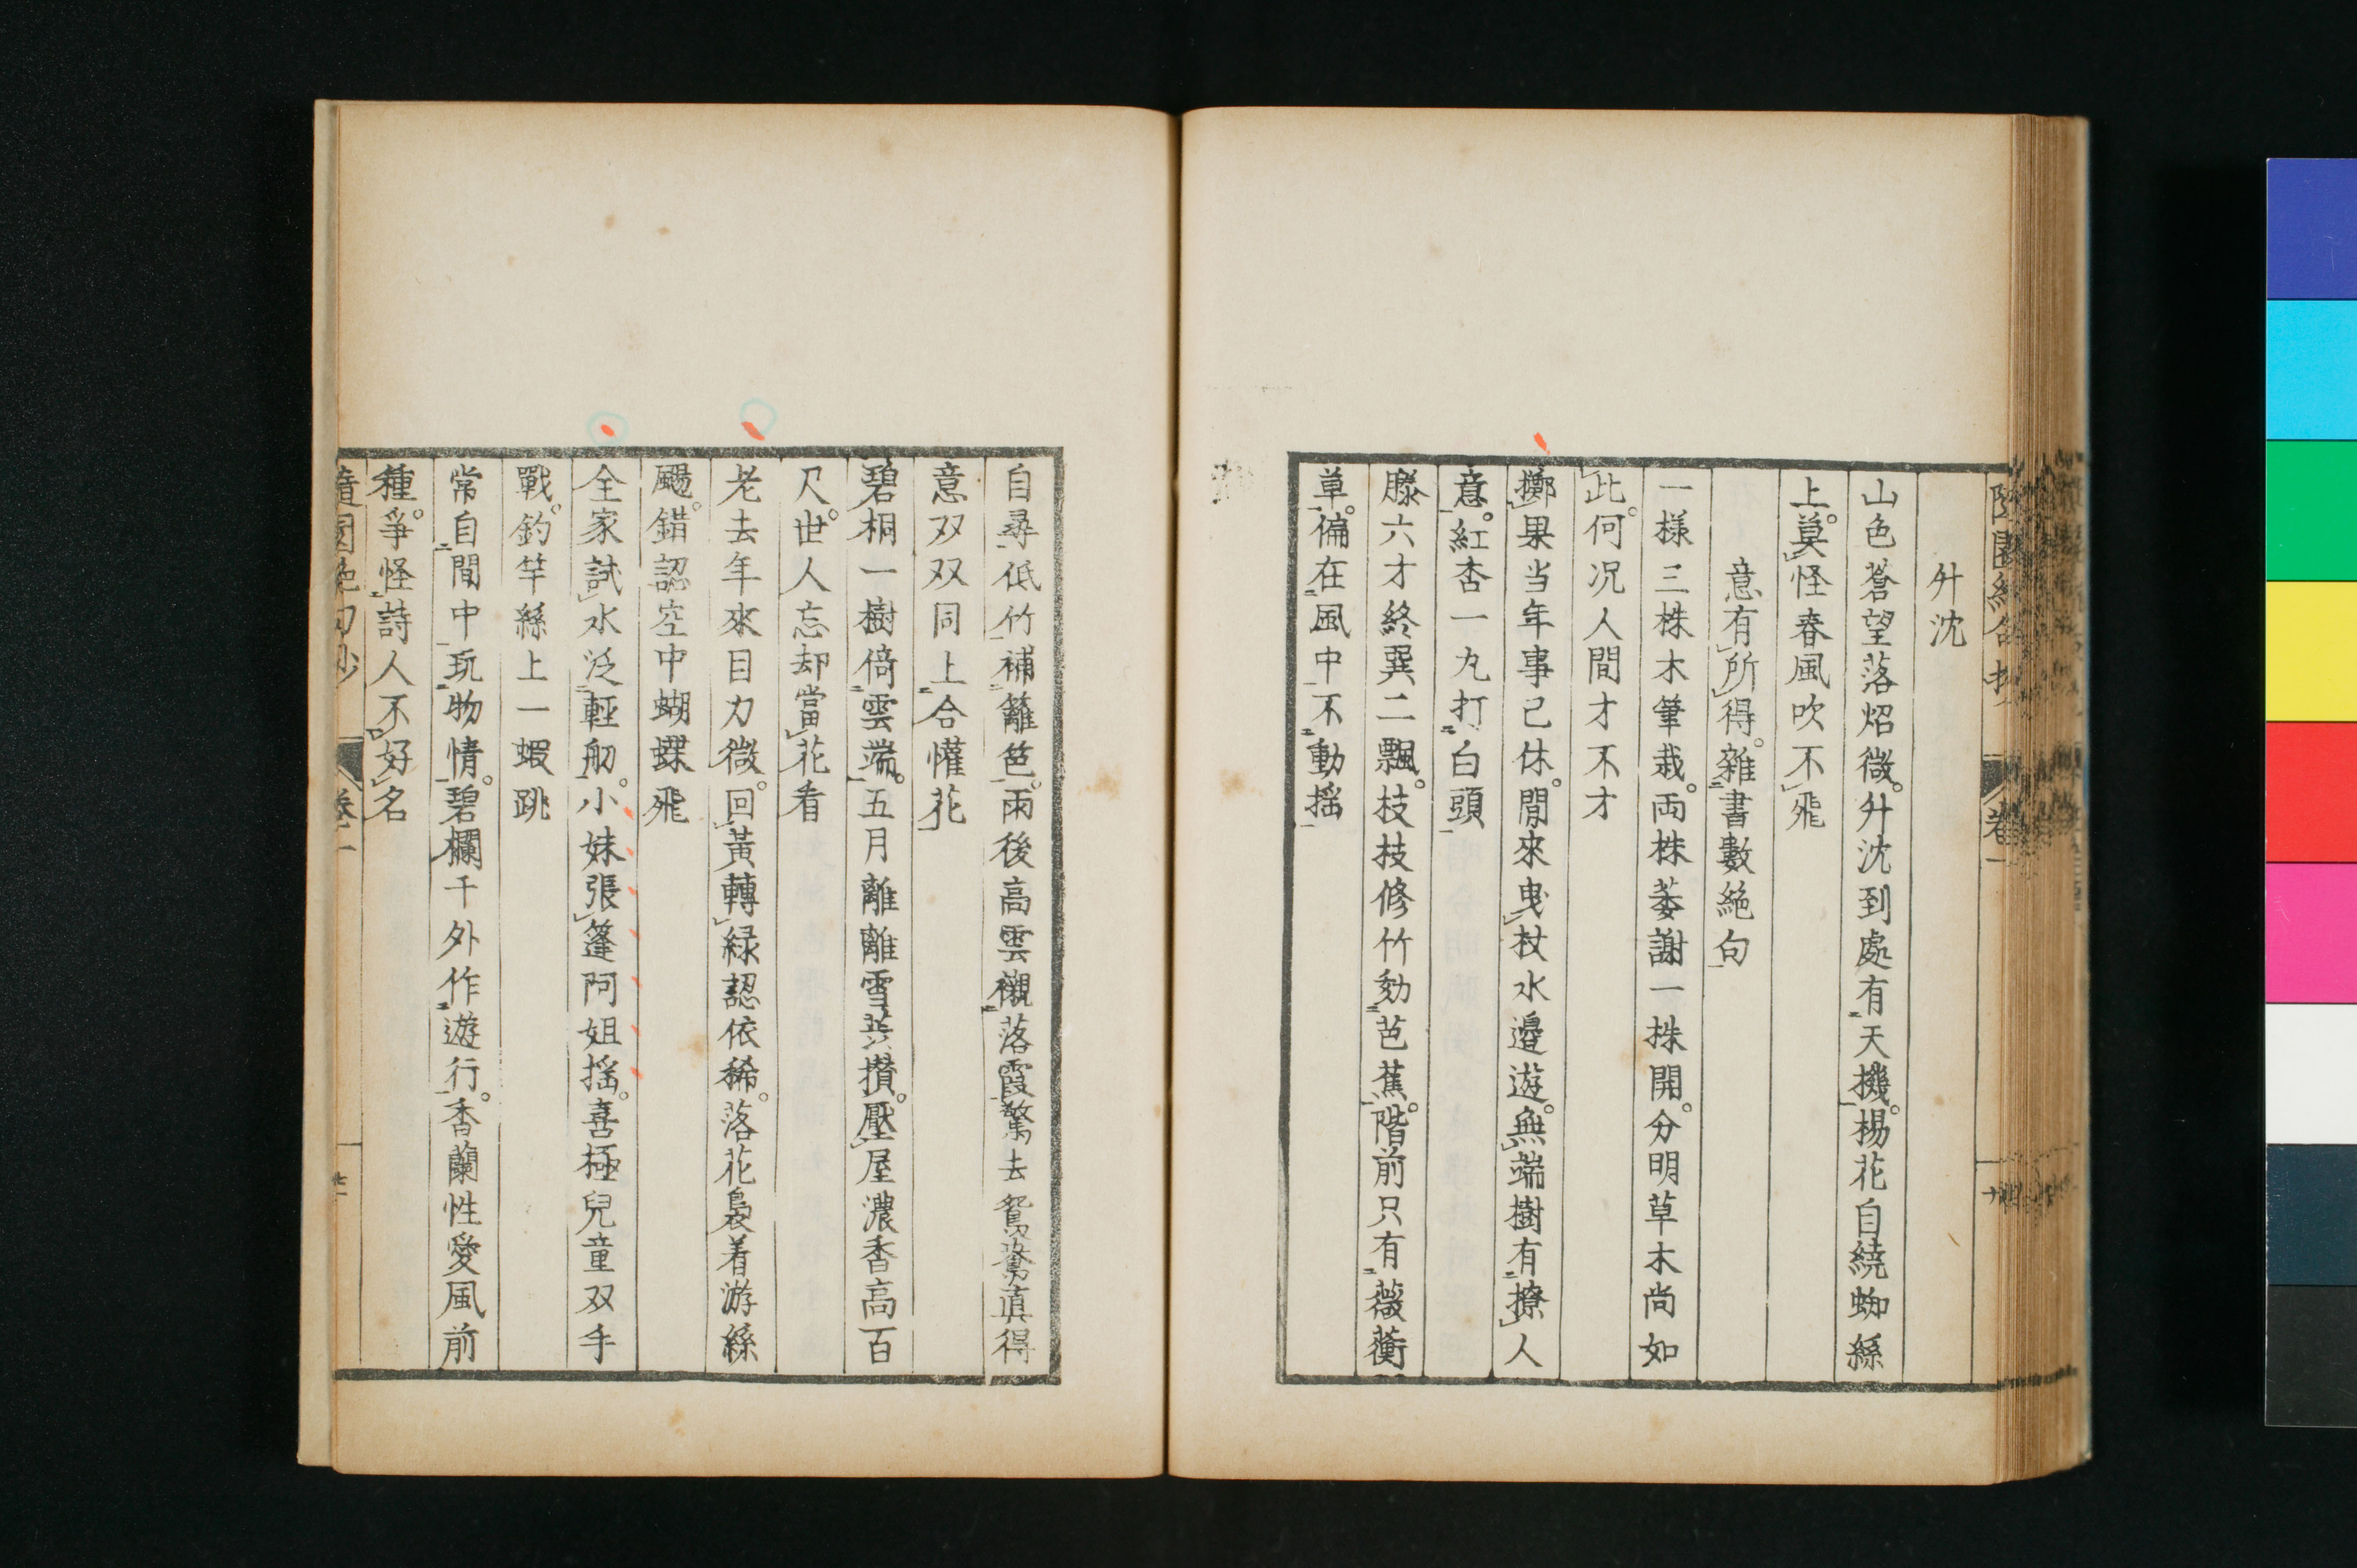 升沈
山色蒼望落炤微升沈到處有天機楊花自繞蜘絲
上莫怪春風吹不飛
意有所得雜書數絶句
一樣三株木筆栽両株萎謝一株開分明草木尚如
此何况人間才不才
擲果当年事已休閒來曳杖水邉遊無端樹有撩人
意紅杏一九打白頭
滕六才終巽二飄枝枝修竹効芭蕉階前只有薇蘅
草偏在風中不動揺
自尋低竹補籬笆雨後高雲襯落霞驚去鴛鴦真得
意双双同上合懽花
碧桐一樹倚雲端五月離離雪共攢壓屋濃香高百
尺世人忘却當花看
老去年來目力微回黃轉緑認依稀落花裊着游絲
颺錯認空中蝴蝶飛
全家試水泛輕舠小妹張篷阿姐揺喜極兒童双手
戰釣竿絲上一蝦跳
常自間中玩物情碧欄干外作遊行香蘭性愛風前
種爭怪詩人不好名
園絶句抄 卷一